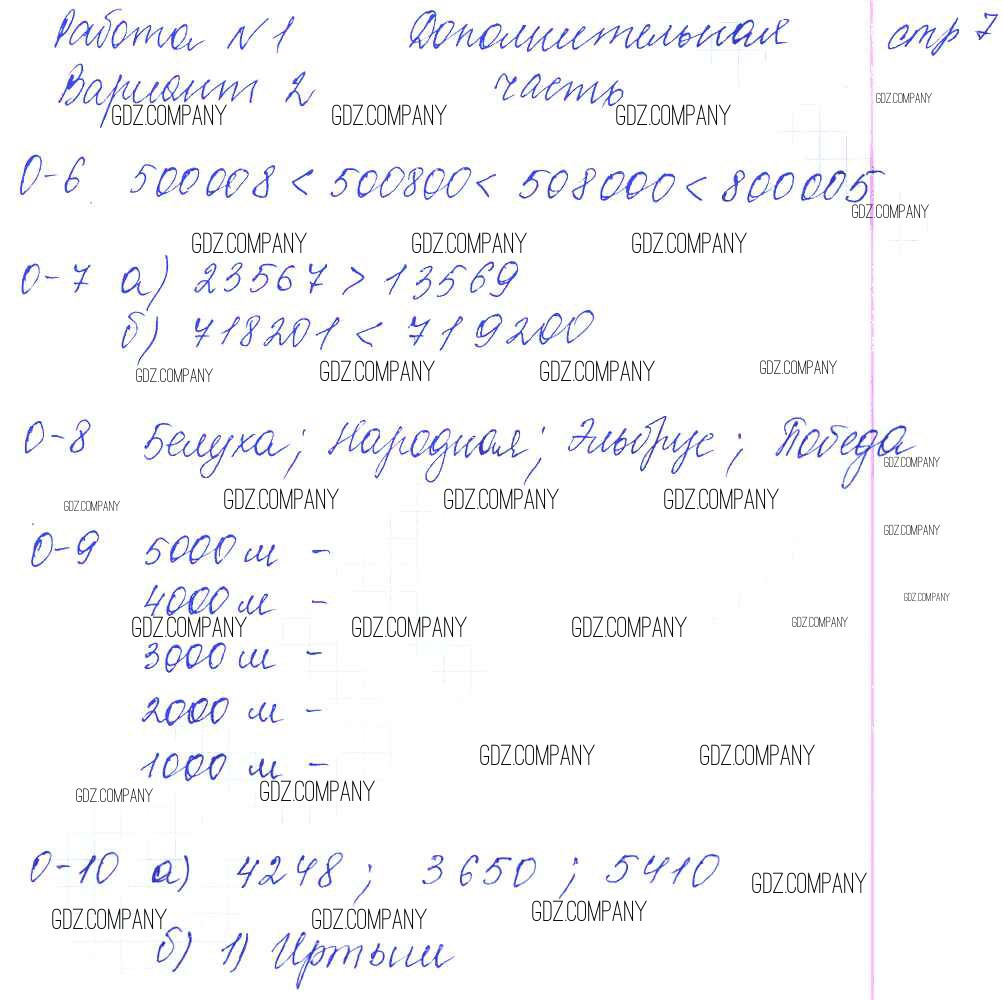 Работа N 1 Дополнительная стр 7
Вариант 2 часть
GDZ.COMPANY GDZ.COMPANY GDZ.COMPANY GDZ.COMPANY
О-6 500008 < 500800 < 508000 < 800005
GDZ.COMPANY
GDZ.COMPANY GDZ.COMPANY GDZ.COMPANY
О-7 а) 23567 > 13569
б) 718201 < 719200
GDZ.COMPANY GDZ.COMPANY GDZ.COMPANY GDZ.COMPANY
О-8 Белуха; Народная; Эльбрус; Победа
GDZ.COMPANY
GDZ.COMPANY GDZ.COMPANY GDZ.COMPANY GDZ.COMPANY
GDZ.COMPANY
О-9 5000 м -
4000 м -
GDZ.COMPANY
GDZ.COMPANY GDZ.COMPANY GDZ.COMPANY GDZ.COMPANY
3000 м -
2000 м -
GDZ.COMPANY GDZ.COMPANY
1000 м -
GDZ.COMPANY GDZ.COMPANY
О-10 а) 4248; 3650; 5410
GDZ.COMPANY
GDZ.COMPANY GDZ.COMPANY GDZ.COMPANY
б) 1) Иртыш